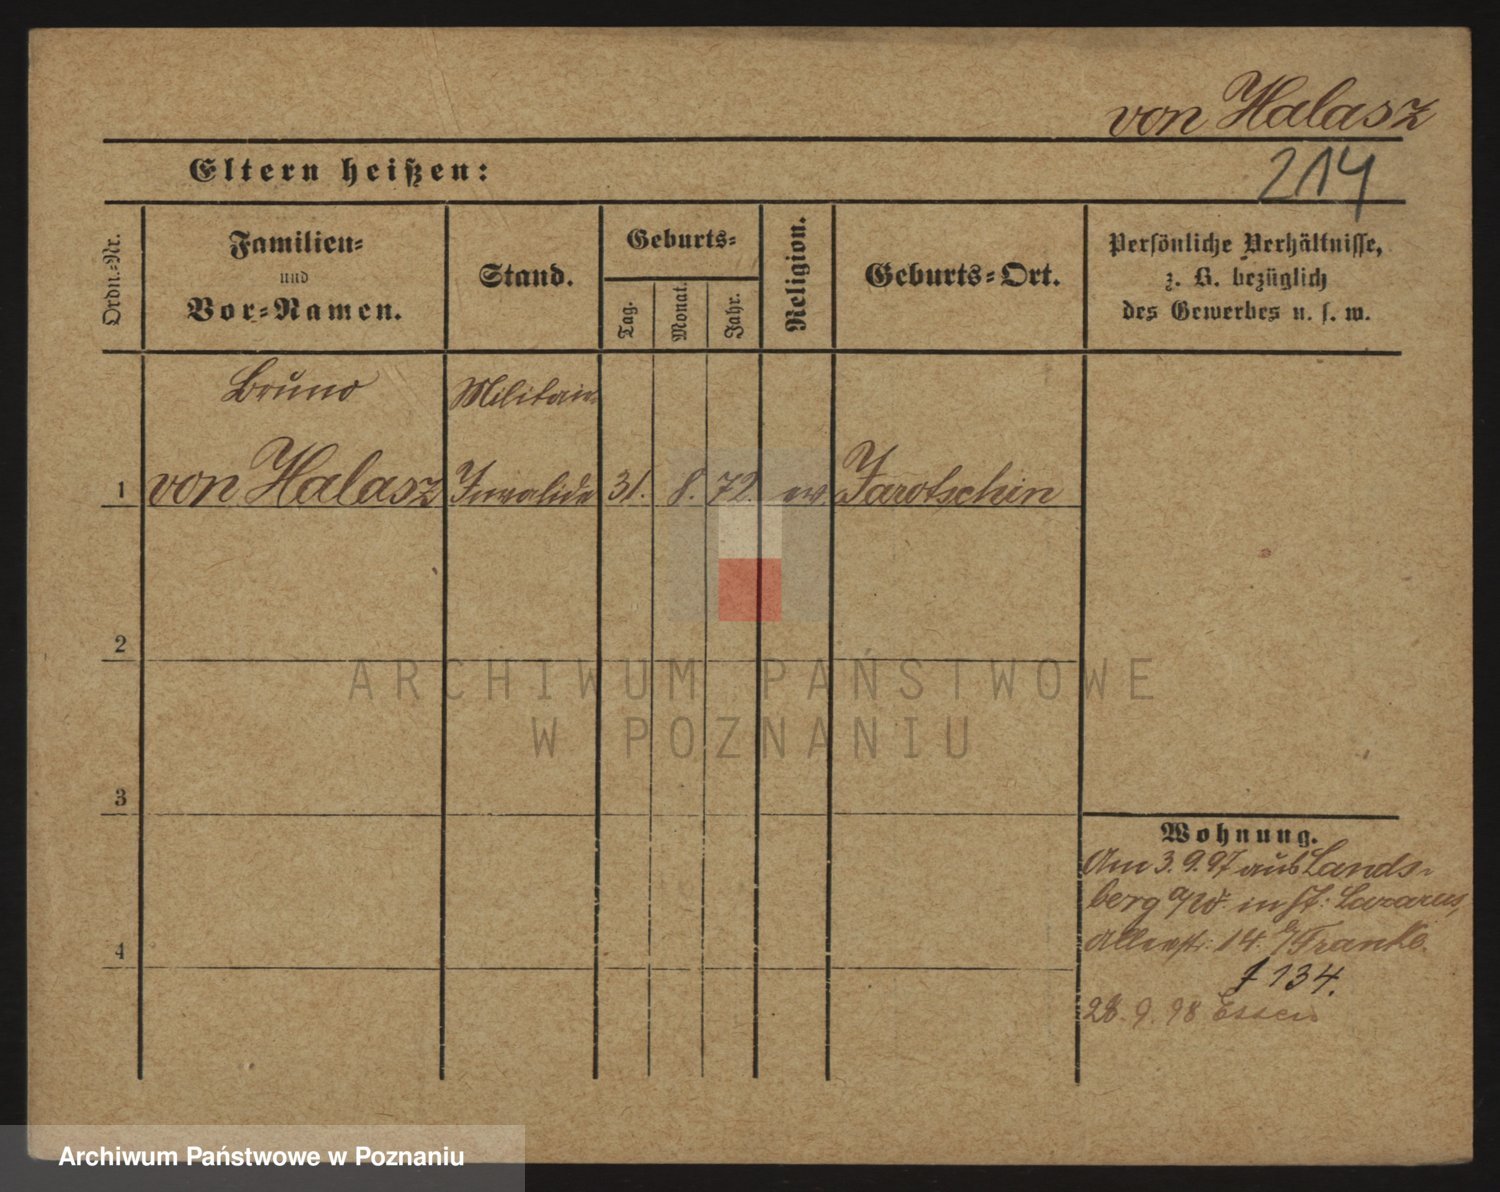 von Halasz
Eltern heißen:
214
Ordn.-Nr.
Familien-
und
Vor-Namen.
Stand.
Geburts-
Tag.
Monat.
Jahr.
Religion.
Geburts-Ort.
Persönliche Verhältnisse,
z. B. bezüglich
des Gewerbes u. s. w.
Bruno
Militair
1 von Halasz Invalide 31. 8. 72 ev. Jarotschin
2
3
4
Wohnung.
Am 3.9.97 aus Lands-
berg a/W. in St. Lazarus,
Allerstr: 14. b/Franke.
134.
28. 9. 98 Essen
ARCHIWUM PAŃSTWOWE
W POZNANIU
Archiwum Państwowe w Poznaniu